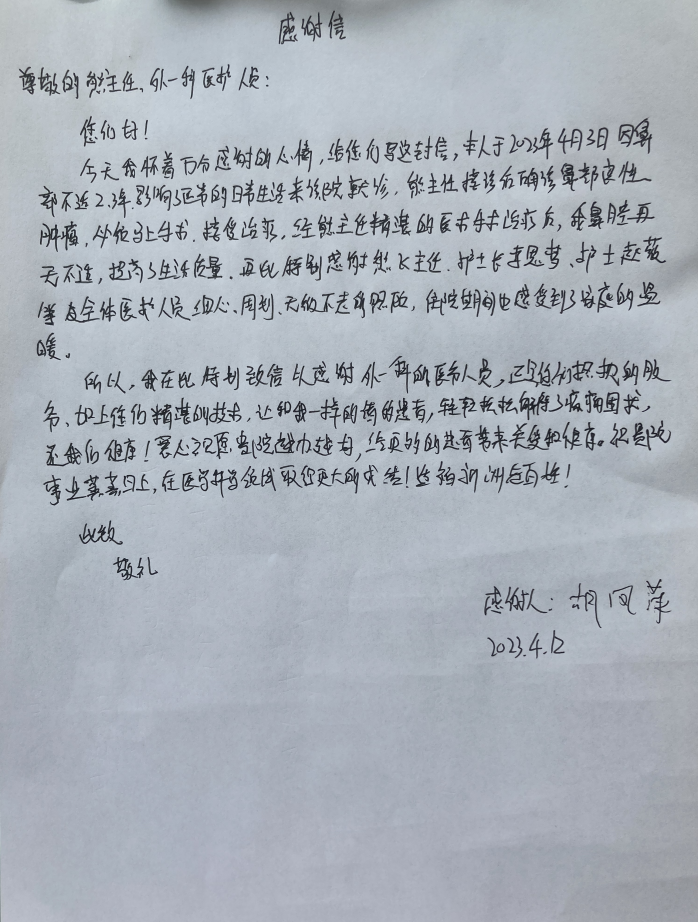 感谢信
尊敬的熊主任、外一科医护人员：
您们好！
今天我怀着万分感谢的心情，给您们写这封信，本人于2023年4月3日因鼻
部不适2.3年.影响了正常的日常生活来该院就诊，熊主任接诊后确诊鼻部良性
肿瘤，必须马上手术.接受治疗，经熊主任精湛的医术手术治疗后，我鼻腔再
无不适，提高了生活质量.再此特别感谢熊飞主任.护士长李思梦、护士赵薇
等及全体医护人员细心、周到、无微不至的照顾，住院期间也感受到了家庭的温
暖。
所以，我在此特别致信以感谢外一科的医务人员，还是你们热的服
务、加上佳的精湛的技术，让和我一样的病的患者，轻轻松松解除了疾病困扰，
还我们健康！衷心祝愿贵院越办越好，给更多的患者带来关爱和健康。祝贵院
事业蒸蒸日上，在医学科学领域取得更大的成绩！造福新洲后百姓！
此致
敬礼
感谢人：胡凤萍
2023.4.12